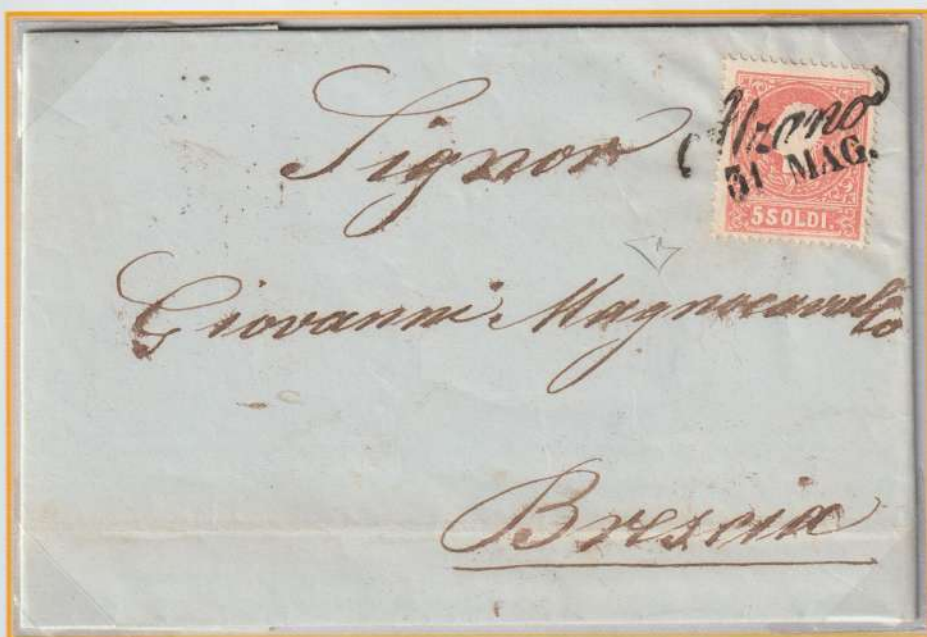 Signor
Alzano
31 MAG.
5 SOLDI.
Giovanni Magnocavallo
Brescia